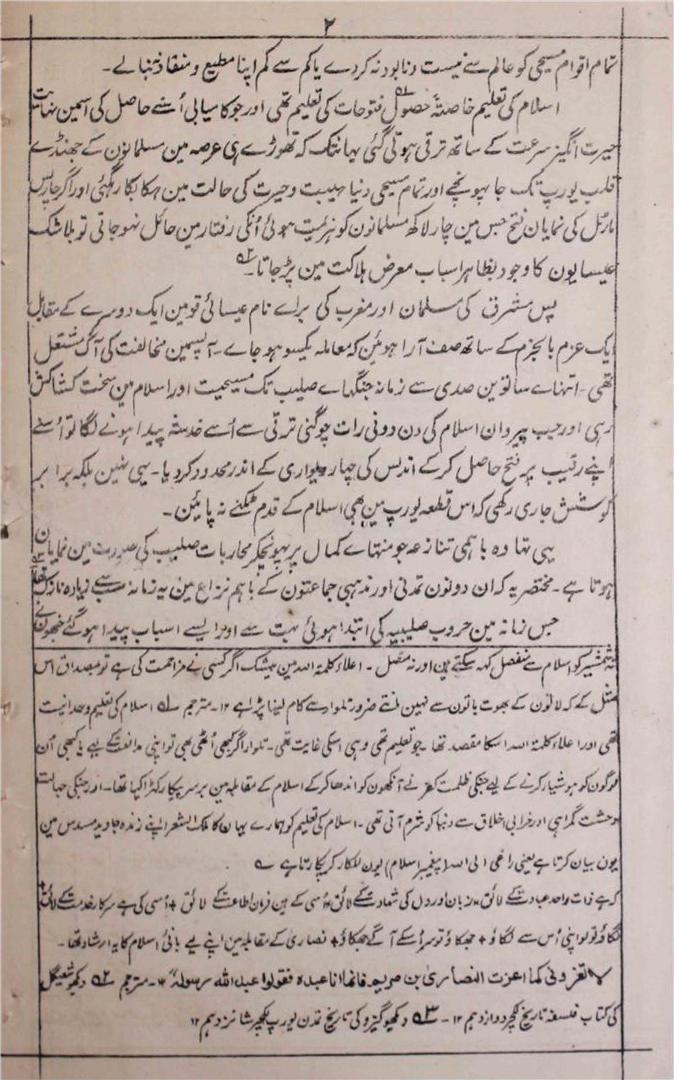 ۲
تمام اقوام مسیحی کو عالم سے نیست و نابود نہ کر دے یا کم سے کم اپنا مطیع و منقاد نہ بنا لے۔
اسلام کی تعلیم خاصتہً حصول فتوحات کی تعلیم تھی اور جو کامیابی اُسنے حاصل کی اسمین نہایت
حیرت انگیز سرعت کے ساتھ ترقی ہوتی گئی یہانتک کہ تھوڑے ہی عرصہ مین مسلمانون کے جھنڈے
قلب یورپ تک جا پہونچے اور تمام مسیحی دنیا ہیبت و حیرت کی حالت مین ہکا بکا رہگئی اور اگر چارلس
مارٹل کی نمایان فتح جس مین چار لاکھ مسلمانون کو ہزیمت ہوئی اُنکی رفتار مین حائل نہوجاتی تو بلاشک
عیسایون کا وجود بظاہر اسباب معرض ہلاکت مین پڑ جاتا۔ ۵۲
پس مشرق کی مسلمان اور مغرب کی براے نام عیسائی قومین ایک دوسرے کے مقابل
ایک عزم بالجزم کے ساتھ صف آرا ہوئین کہ معاملہ یکسو ہو جاے۔ آپسمین مخالفت کی آگ مشتعل
تھی۔ انتہاے ساتوین صدی سے زمانہ جنگہاے صلیب تک مسیحیت اور اسلام مین سخت کشاکش
رہی اور جب پیروان اسلام کی دن دونی رات چوگنی ترقی سے اُسے خدشہ پیدا ہونے لگا تو اُسنے
اپنے رقیب پر فتح حاصل کرکے اندلس کی چہار دیواری کے اندر محدود کر دیا۔ یہی نہین بلکہ برابر
کوشش جاری رکھی کہ اس قطعہ یورپ مین بھی اسلام کے قدم ٹکنے نہ پائین۔
یہی تھا وہ باہمی تنازعہ جو منتہاے کمال پر پہونچکر محاربات صلیب کی صورت مین نمایان
ہوتا ہے۔ مختصر یہ کہ ان دونون تمدنی اور مذہبی جماعتون کے باہم نزاع مین یہ زمانہ سب سے زیادہ نازک تھا ۵۳
جس زمانہ مین حروب صلیبیہ کی ابتدا ہوئی بہت سے اور ایسے اسباب پیدا ہو گئے جنھون نے
شمشیر کو اسلام سے منفصل کہہ سکتے ہین اور نہ متصل۔ اعلاء کلمۃ اللہ مین بیشک اگر کسی نے مزاحمت کی ہے تو بمصداق اس
مثل کے کہ لاتون کے بھوت باتون سے نہین مانتے ضرور تلوار سے کام لینا پڑا ہے ۱۲۔ مترجم ۵۱ اسلام کی تعلیم وحدانیت
تھی اور اعلاء کلمۃ اللہ اسکا مقصد تھا۔ جو تعلیم تھی وہی اسکی غایت تھی۔ تلوار اگر کبھی اُٹھی بھی تو اپنی مدافعت کے لیے یا کبھی اُن
لوگون کو ہوشیار کرنے کے لیے جنکی ظلمت کفر نے آنکھون کو اندھا کر کے اسلام کے مقابلہ مین برسر پیکار کھڑا کیا تھا۔ اور جنکی جہالت
وحشت گمراہی اور خرابی اخلاق سے دنیا کو شرم آتی تھی۔ اسلام کی تعلیم کو ہمارے یہان کا ملک الشعرا اپنے زندہ جاوید مسدس مین
یون بیان کرتا ہے یعنی داعی الی اللہ (پیغمبر اسلام) یون للکار کر پکارتا ہے ؎
کہ ہے ذات واحد عبادت کے لائق + زبان اور دل کی شہادت کے لائق + اُسی کے ہین فرمان اطاعت کے لائق + اُسی کی ہے سرکار خدمت کے لائق +
لگاؤ تو لو اپنی اُس سے لگاؤ + جھکاؤ تو سر اُسکے آگے جھکاؤ + نصاری کے مقابلہ مین اپنے لیے بانی اسلام کا یہ ارشاد تھا۔
لا تعزونی کما اعزت النصاری بن مریم فانما انا عبدہ فقولوا عبد اللہ و رسولہ ۱۲۔ مترجم ۵۲ دیکھو شلیگل
کی کتاب فلسفہ تاریخ لکچر دوازدہم ۱۲۔ ۵۳ دیکھو گیزو کی تاریخ تمدن یورپ لکچر شانزدہم ۱۲